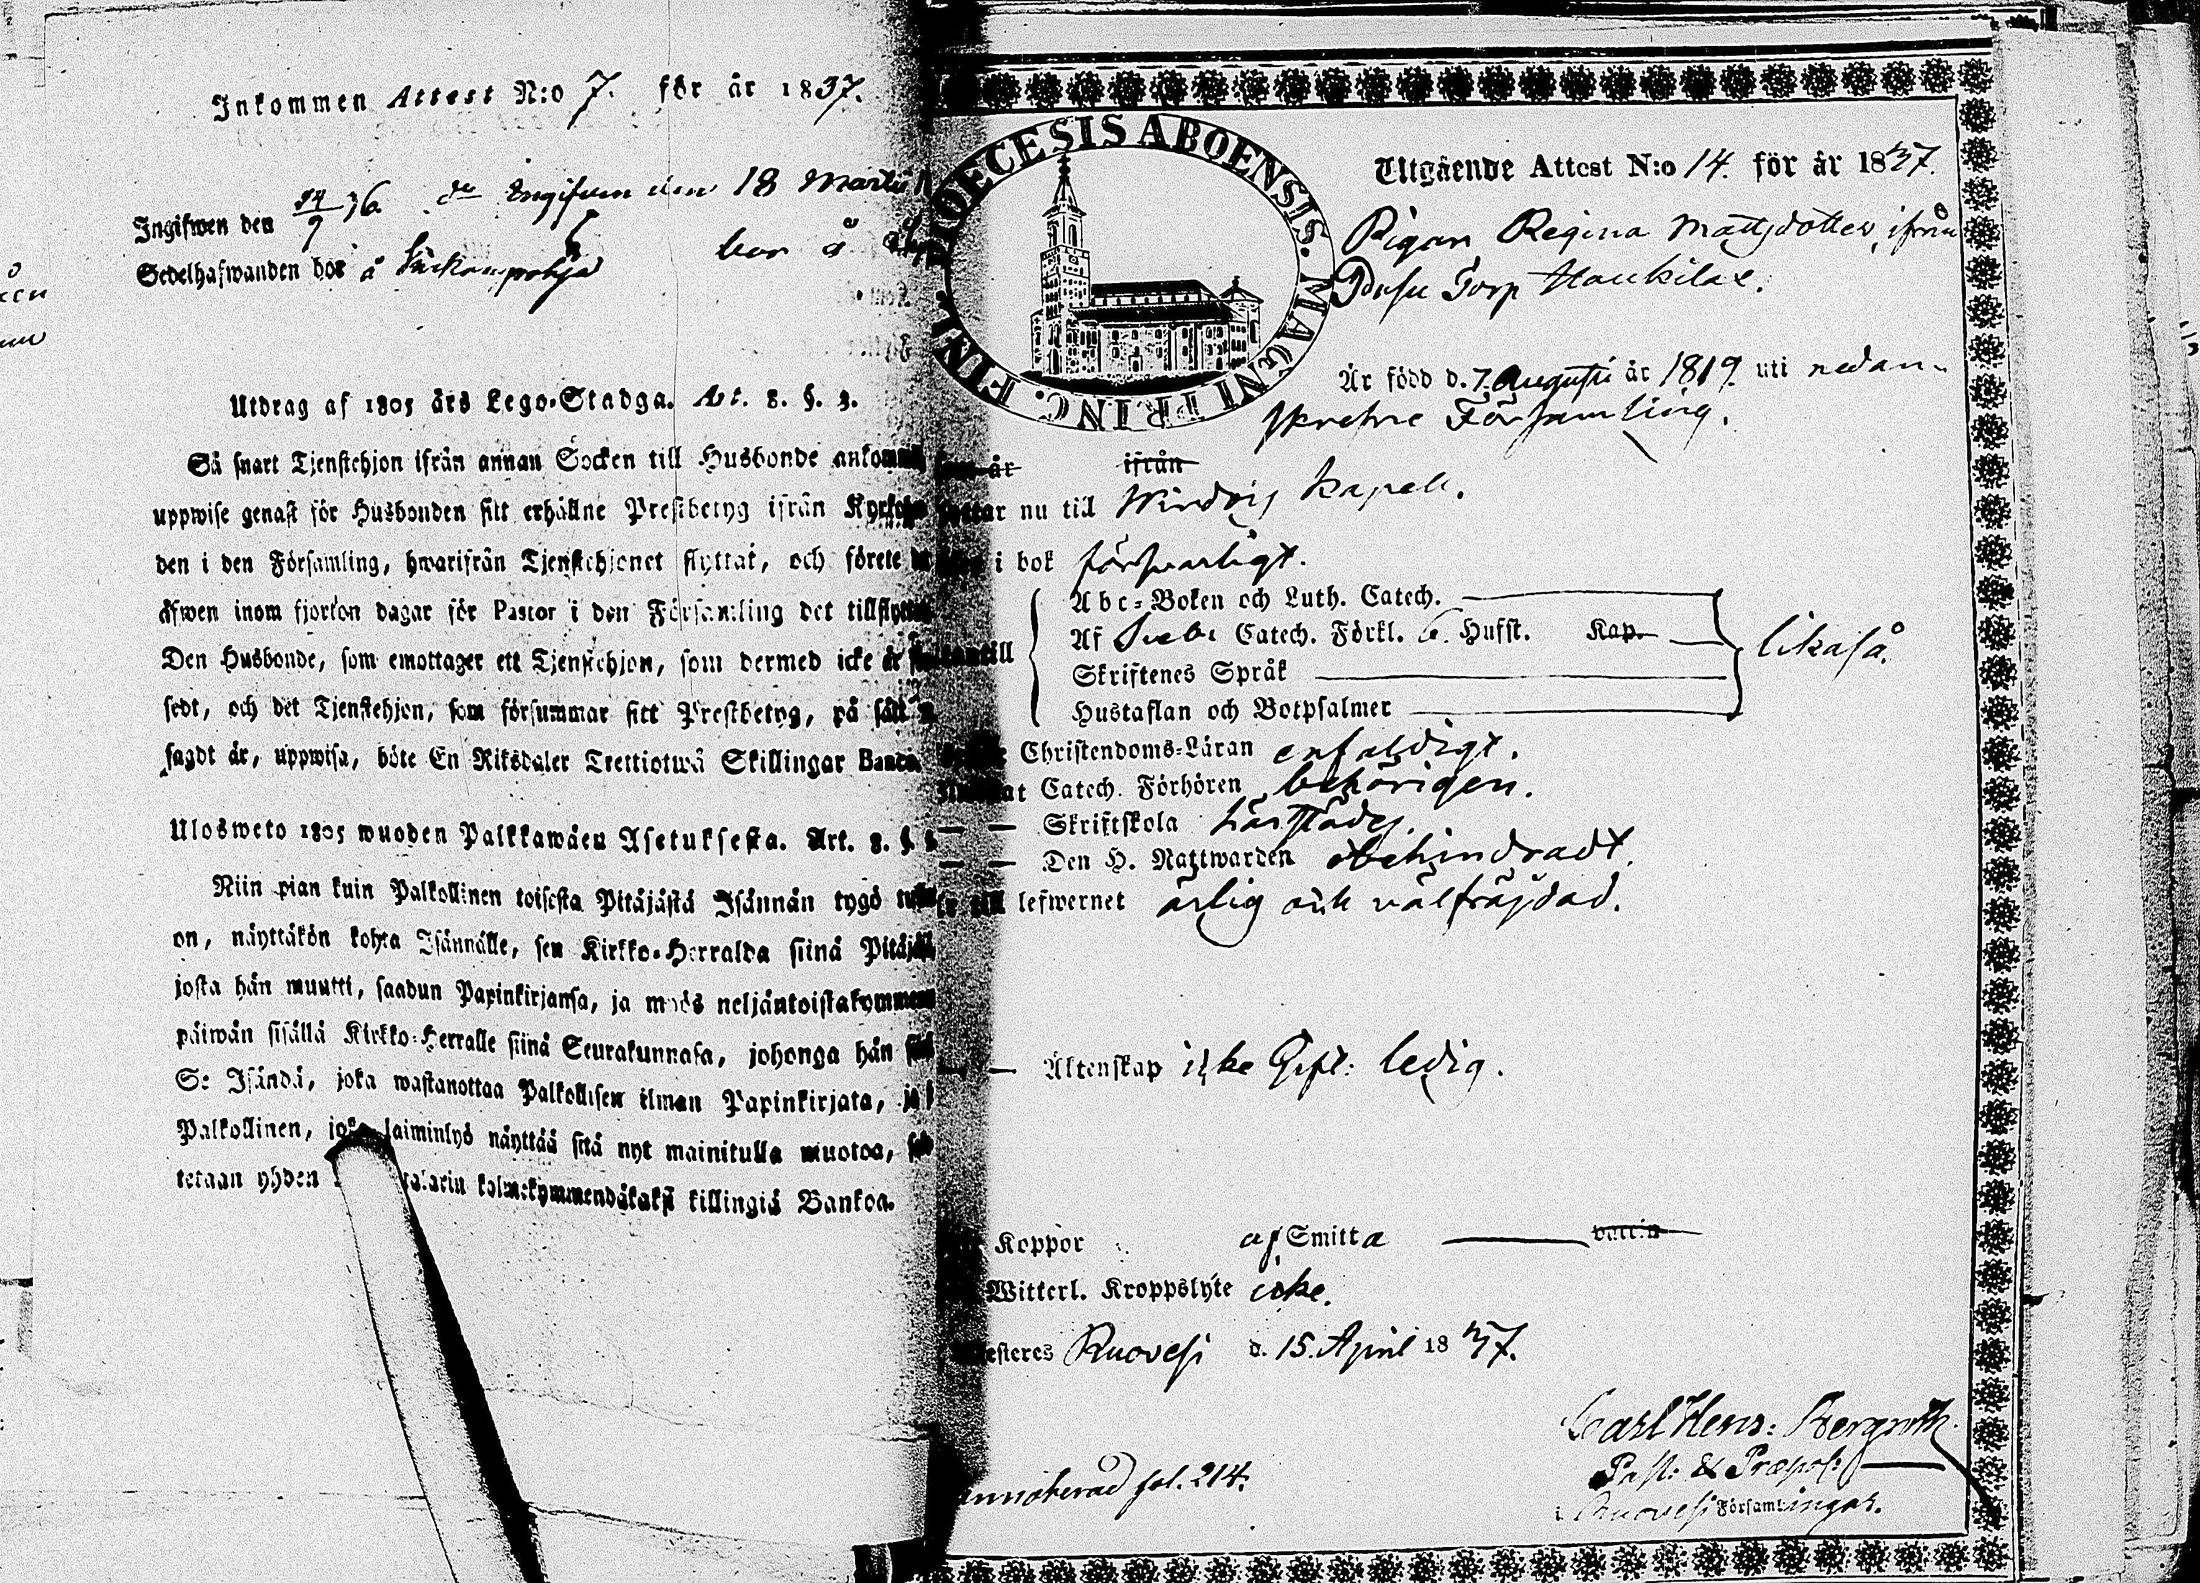 Inkommen Attest N:o 7. för år 1837.
Ingifwen den 36. Ingifven den 18 Martii
Sedelhafwanden bor å bor å
Utdrag af 1805 års Lego-Stadga. Art. 8. §. 3.
Så snart Tjenstehjon ifrån annan Socken till Husbonde
uppwise genast för Husbonden sitt erhållne Prestbetyg ifrån
den i den Församling, hwarifrån Tjenstehjonet flyttat, och förete
äfwen inom fjorton dagar för Pastor i den Församling det
Den Husbonde, som emottager ett Tjenstehjon, som dermed icke är
sedt, och det Tjenstehjon, som försummar sitt Prestbetyg, på sätt
sagdt är, uppwisa, böte En Riksdaler Trettiotwå Skillingar Banco.
Ulosweto 1805 wuoden Palkkawäen Asetuksesta. Art. 8. §.
Niin pian kuin Palkollinen toisesta Pitäjästä Isännän tygö
on, näyttäkön kohta Isännälle, sen Kirkko-Herralda siinä
josta hän muutti, saadun Papinkirjansa, ja myös
päiwän sisällä Kirkko-Herralle siinä Seurakunnasa, johonga hän
Se Isändä, joka wastanottaa Palkollisen ilman Papinkirjata, ja
Palkollinen, laiminlyö näyttää sitä nyt mainitulla muotoa,
tetaan yhden kolmekymmendäkaksi killingiä Bankoa.
DIOECESIS ABOENSIS. MAGNI PRINC. FINL.
Utgående Attest N:o 14. för år 1837.
Pigan Regina Mattsdotter, ifrån
Torp Haukilax.
Är född d. 7. Augusti år 1819. uti nedan-
skrefne Församling.
ifrån
nu till Kapell.
i bok försvarligt.
Abc-Boken och Luth. Catech.
Af Catech. Förkl. 6. Hufst. Kap.
Skriftenes Språk
likaså.
Hustaflan och Botpsalmer
Christendoms-Läran enfaldigt.
Catech. Förhören behörigen.
Skriftskola härstädes.
Den H. Nattwarden obehindradt.
lefwernet ärlig och välfräjdad.
Äktenskap icke Gift: ledig.
Koppor af Smitta vaccin
Witterl. Kroppslyte icke.
Ruovesi d. 15. April 1837.
Carl Henr: Bergroth.
Past: & Præpos:
Ruovesi Församlingar.
fol. 214.